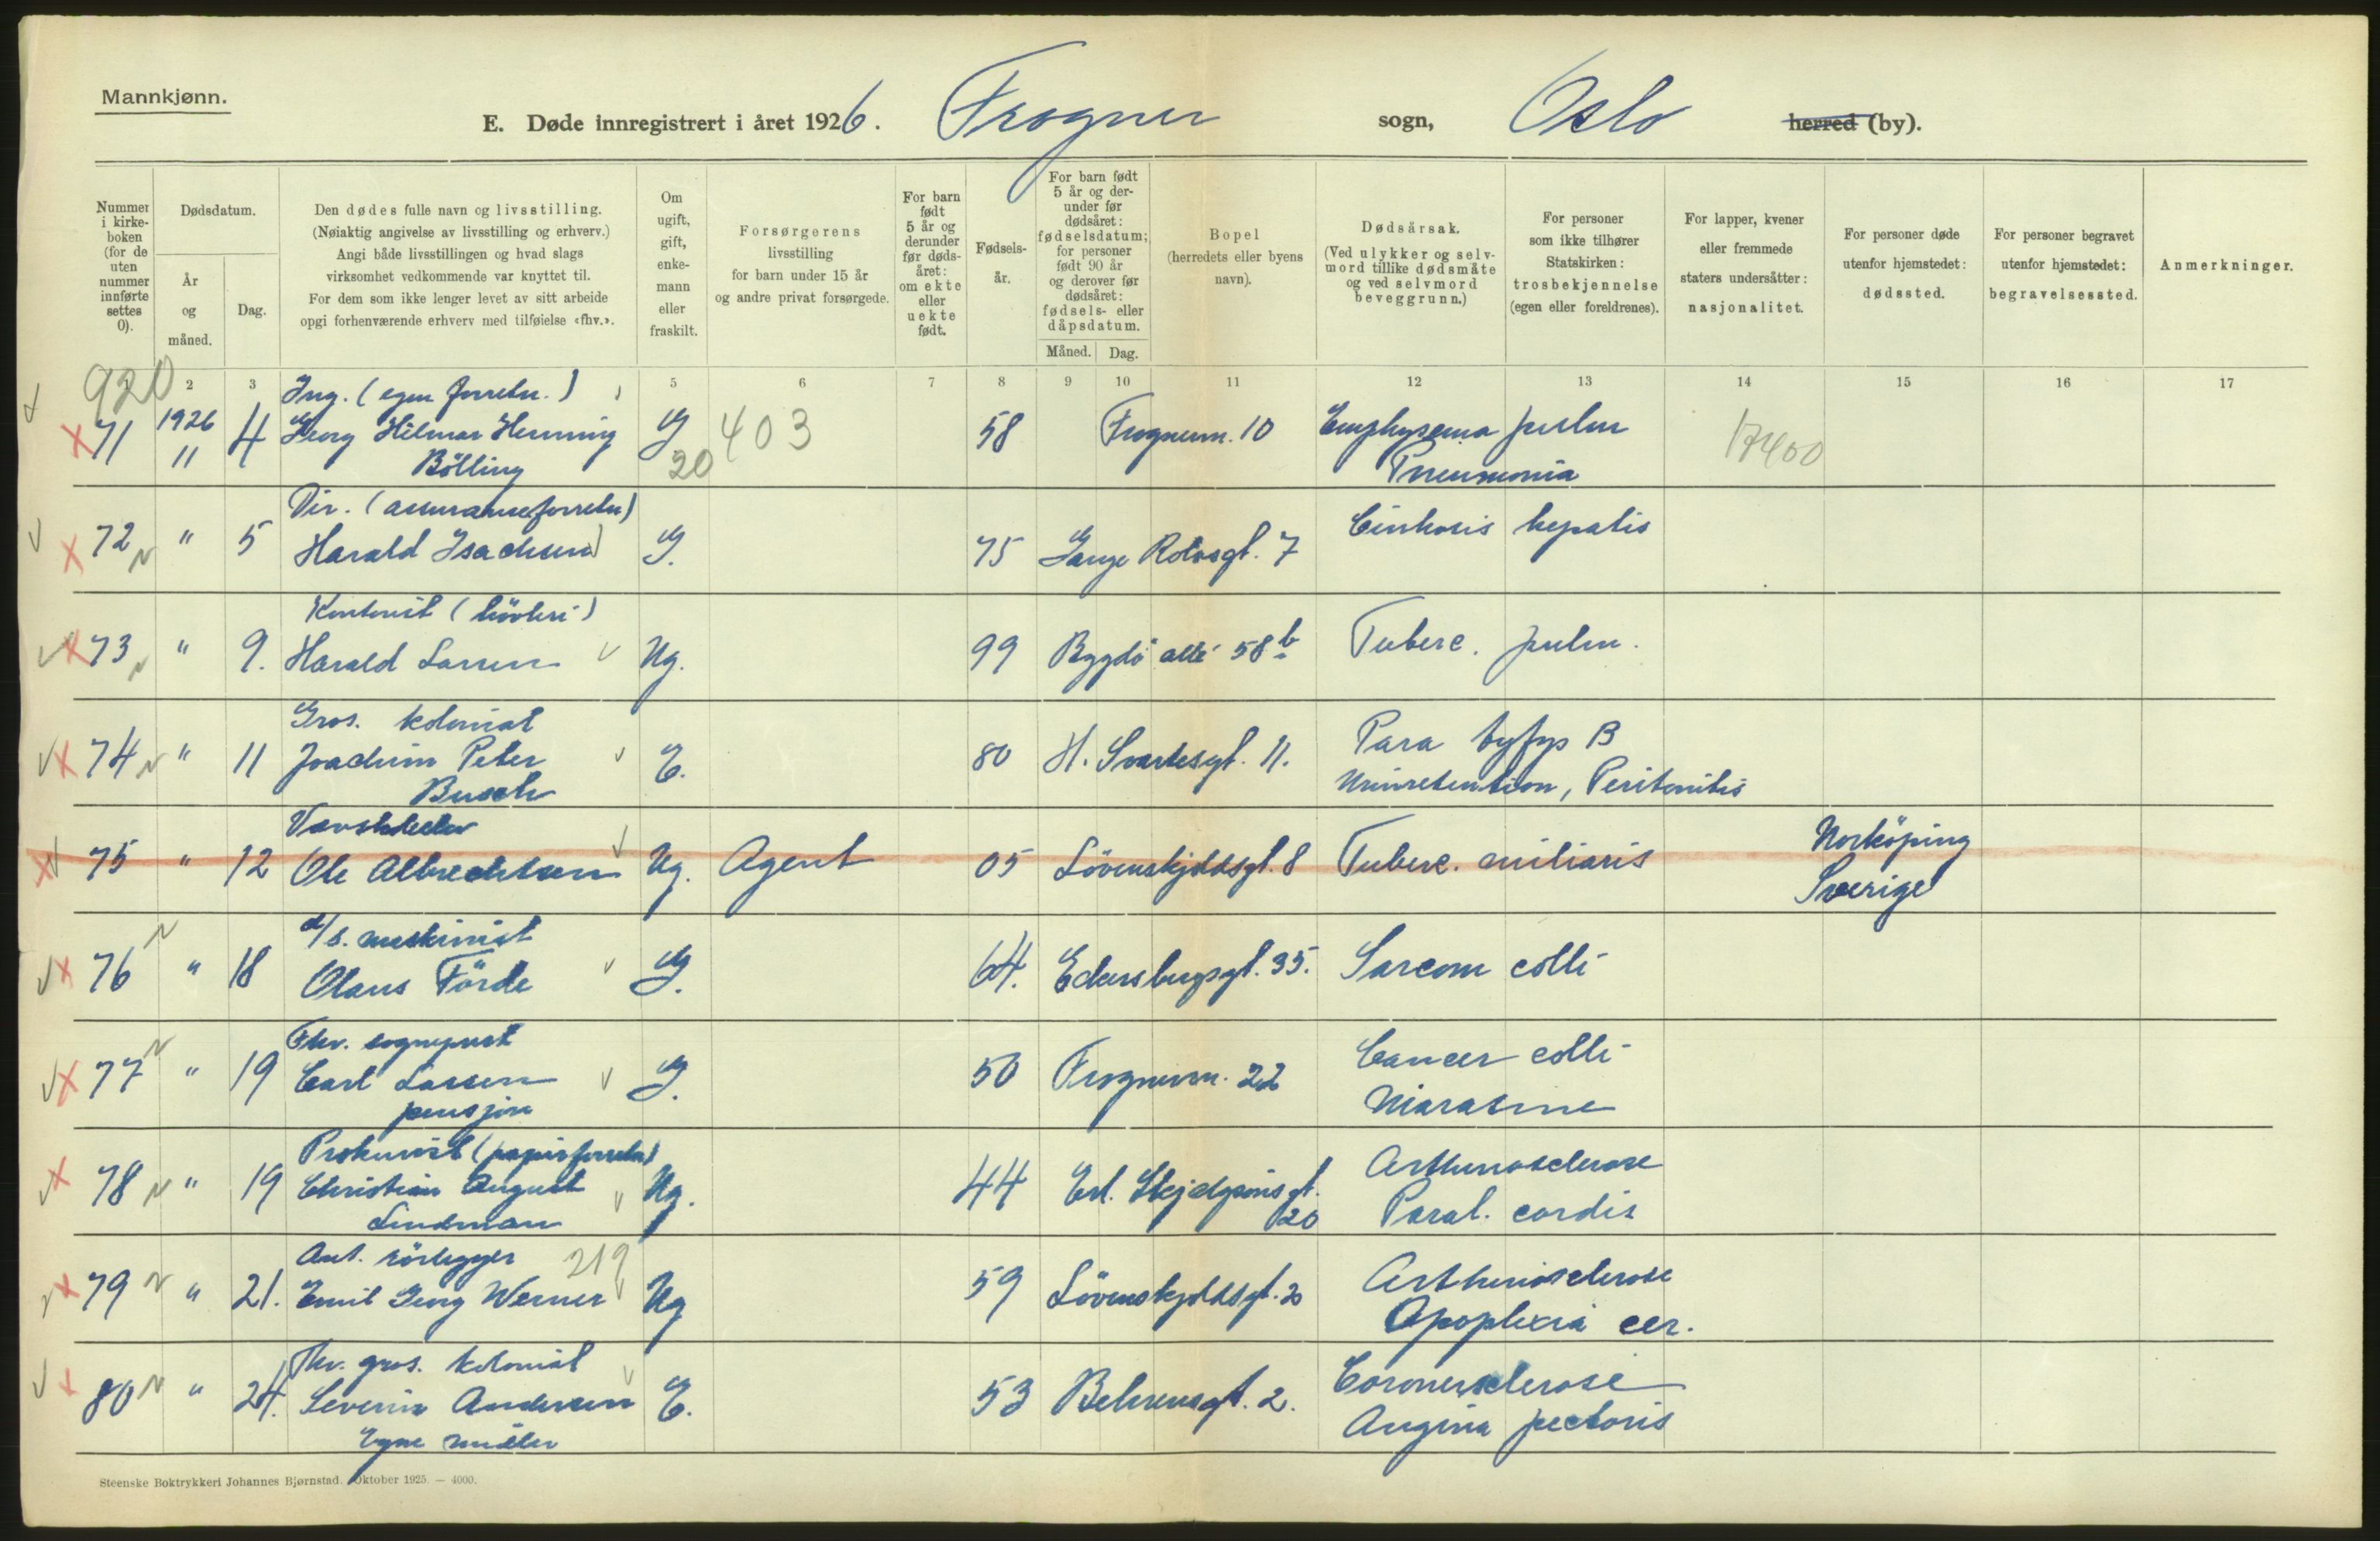 Mannkjønn.
E. Døde innregistrert i året 1926. Frogner sogn, Oslo herred (by).
Nummer i kirkeboken (for de uten nummer innførte settes 0).
Dødsdatum.
År og måned.
Dag.
Den dødes fulle navn og livsstilling.
(Nøiaktig angivelse av livsstilling og erhverv.)
Angi både livsstillingen og hvad slags
virksomhet vedkommende var knyttet til.
For dem som ikke lenger levet av sitt arbeide
opgi forhenværende erhverv med tilføielse «fhv.».
Om ugift, gift, enkemann eller fraskilt.
Forsørgerens livsstilling
for barn under 15 år
og andre privat forsørgede.
For barn født 5 år og derunder før dødsåret: om ekte eller uekte født.
Fødselsår.
For barn født 5 år og derunder før dødsåret: fødselsdatum; for personer født 90 år og derover før dødsåret: fødsels- eller dåpsdatum.
Måned. Dag.
Bopel
(herredets eller byens navn).
Dødsårsak.
(Ved ulykker og selvmord tillike dødsmåte og ved selvmord beveggrunn.)
For personer som ikke tilhører Statskirken: trosbekjennelse (egen eller foreldrenes).
For lapper, kvener eller fremmede staters undersåtter: nasjonalitet.
For personer døde utenfor hjemstedet: dødssted.
For personer begravet utenfor hjemstedet: begravelsessted.
Anmerkninger.
1 2 3 5 6 7 8 9 10 11 12 13 14 15 16 17
920
Ing. (egen forretn.)
71 1926 11 4 Georg Hilmar Henning G 403 58 Frognerv. 10 Emphysema pulm 17400
Bölling 20 Pneumonia
Dir. (assuranseforretn)
72 " 5 Harald Isachsen G. 75 Gange Rolvsgt. 7 Cirrhosis hepatis
Kontorist (høvleri)
73 " 9. Harald Larsen Ug. 99 Bygdö allé 58b Tuberc. pulm.
Gros. kolonial
74 " 11 Joachim Peter E. 80 H. Svertesgt. 11. Para tyfys B
Busch Urinretention, Peritonitis
75 " 12 Ole Albrechtsen Ug. Agent 05 Lövenskjoldsgt. 8 Tuberc. miliaris Norköping
Sverige
d/s. maskinist
76 " 18 Olaus Förde G. 64. Eckersbergsgt. 35. Sarcom colli
Fhv. sogneprest
77 " 19 Carl Lassen G. 50 Frognerv. 22 Cancer colli
pensjon Marasme
Prokurist (papirforretn)
78 " 19 Christian August Ug. 44 Erl. Skjalgsonsgt. 20 Artheriosclerose
Lindman Paral. cordis
Aut. rörlegger 219
79 " 21. Emil Georg Werner Ug 59 Lövenskjoldsgt. 2 Artheriosclerose
Apoplexia cer.
Fhv. gros. kolonial
80 " 24. Severin Andersen E. 53 Behrensgt. 2. Coronersclerose
Egne midler Angina pectoris
Steenske Boktrykkeri Johannes Bjørnstad. Oktober 1925. — 4000.